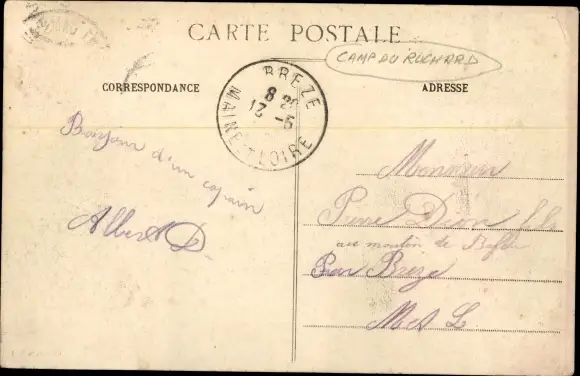 CARTE POSTALE
CAMP DU RUCHARD
CORRESPONDANCE
ADRESSE
BREZE
8 20
13 -5
MAINE-&-LOIRE
Bonjour d'un copain
Albert D.
Monsieur
Pierre Dion
au moulin de
Par Brézé
M et L